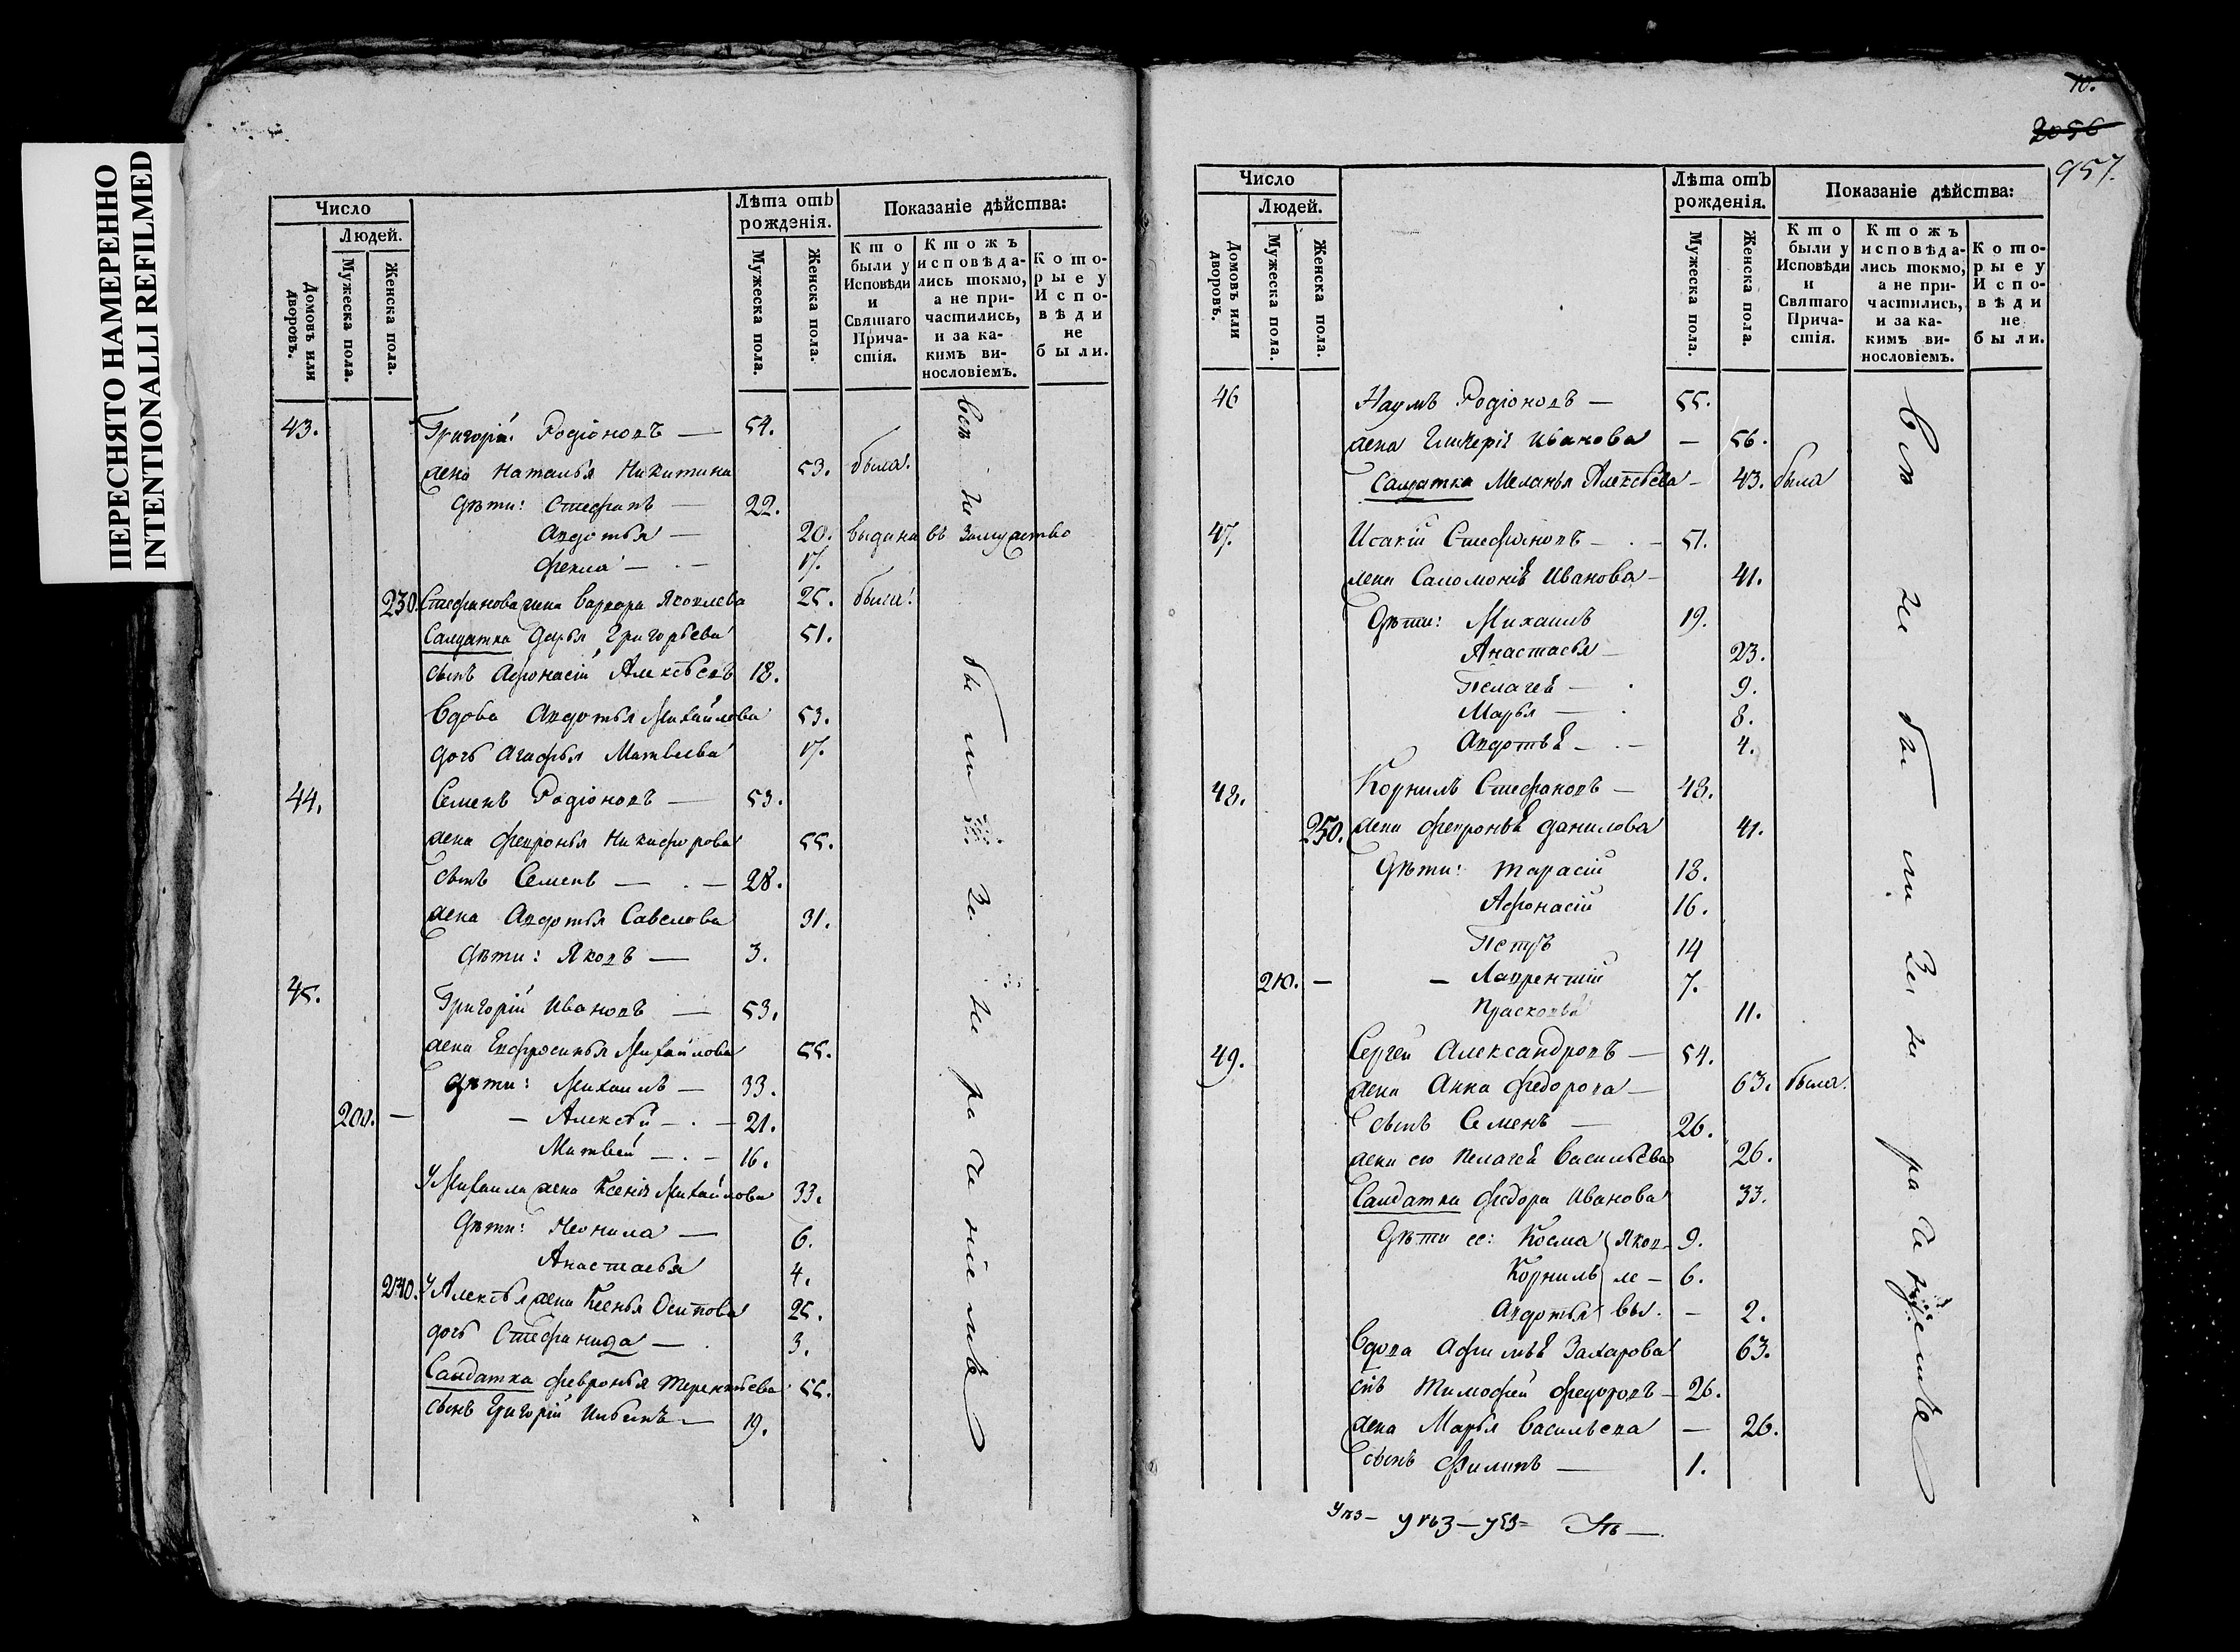 ПЕРЕСНЯТО НАМЕРЕННО
INTENTIONALLI REFILMED
Число
Людей.
Домовъ или дворовъ.
Мужеска пола.
Женска пола.
Лѣта отъ рожденія.
Мужеска пола.
Женска пола.
Показаніе дѣйства:
Кто были у Исповѣди и Святаго Прича-стія.
Ктожъ исповѣда-лись токмо, а не при-частились, и за ка-кимъ ви-нословіемъ.
Кото-рые у Испо-вѣди не были.
43. Григорій Родіоновъ — 54.
жена Наталья Никитина 53. была.
Дѣти: Стефанъ — 22.
Авдотья — 20. выдана въ Замужство
Фекла — . — 17.
230. Стефанова жена Варвара Яковлева 25. была.
Салдатка Дарья Григорьева 51.
сынъ Афонасій Алексѣевъ 18.
Вдова Авдотья Михайлова 53.
дочь Агафья Матвеева 17.
44. Семенъ Родіоновъ — 53.
жена Февронья Никифорова 55.
сынъ Семенъ — . — 28.
жена Авдотья Савелова 31.
Дѣти: Яковъ — 3.
45. Григорій Ивановъ — 53.
жена Евфросинья Михайлова 55.
Дѣти: Михаилъ — 33.
200. — — Алексѣй — . — 21.
Матвей — . — 16.
У Михаила жена Ксенія Михайлова 33.
Дѣти: Неонила — 6.
Анастасья 4.
240. У Алексѣя жена Ксенья Осипова 25.
дочь Стефанида — 3.
Салдатка Февронья Терентьева 55.
сынъ Григорій — 19.
Всѣ не были За не раченіемъ
10.
2056
957.
Число
Людей.
Домовъ или дворовъ.
Мужеска пола.
Женска пола.
Лѣта отъ рожденія.
Мужеска пола.
Женска пола.
Показаніе дѣйства:
Кто были у Исповѣди и Святаго Прича-стія.
Ктожъ исповѣда-лись токмо, а не при-частились, и за ка-кимъ ви-нословіемъ.
Кото-рые у Испо-вѣди не были.
46 Наумъ Родіоновъ — 55.
жена Гликерія Иванова — 56.
Салдатка Меланья Алексѣева — 43. была
47. Исакій Стефановъ — . — 51.
жена Саломонія Иванова — 41.
Дѣти: Михаилъ 19.
Анастасья — 23.
Пелагея — . 9.
Марья — . 8.
Авдотья — . — 4.
48. Корнилъ Стефановъ — 48.
250. жена Февронья Данилова 41.
Дѣти: Тарасій 18.
Афонасій 16.
Петръ 14
210. — — Лаврентій 7.
Прасковья 11.
49. Сергей Александровъ — 54.
жена Анна Федорова — 63. была.
сынъ Семенъ — 26.
жена его Пелагея Васильева 26.
Салдатка Федора Иванова 33.
Дѣти ее: Косма Яков- 9.
Корнилъ ле — 6.
Авдотья вы. — 2.
Вдова Афимья Захарова 63.
сынъ Тимофей Федоровъ — 26.
жена Марья Васильева — 26.
сынъ Филипъ — 1.
Всѣ не были За не раченіемъ